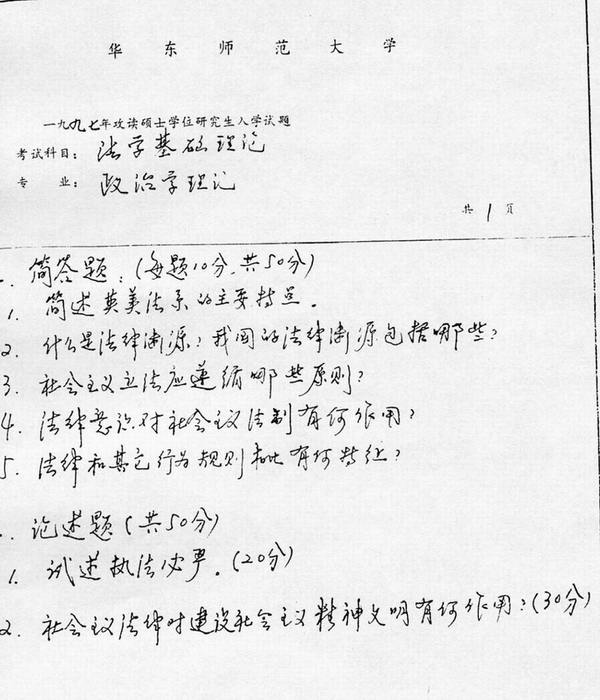 华东师范大学
一九九七年攻读硕士学位研究生入学试题
考试科目：法学基础理论
专业：政治学理论
共1页
简答题：(每题10分,共50分)
1. 简述英美法系的主要特点.
2. 什么是法律渊源？我国的法律渊源包括哪些？
3. 社会主义立法应遵循哪些原则？
4. 法律意识对社会主义法制有何作用？
5. 法律和其它行为规则相比有何特征？
论述题(共50分)
1. 试述执法必严.(20分)
2. 社会主义法律对建设社会主义精神文明有何作用？(30分)